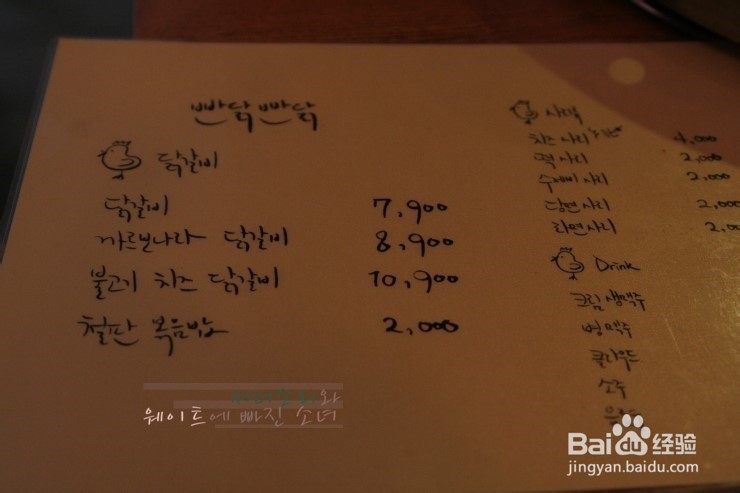 빤닭빤닭
닭갈비
닭갈비 7,900
까르보나라 닭갈비 8,900
불고기 치즈 닭갈비 10,900
철판 볶음밥 2,000
사리
치즈 사리 4,000
떡 사리 2,000
수제비 사리 2,000
당면사리 2,000
라면사리 2,00
Drink
크림 생맥주
병맥주
클라우드
소주
웨이트에 빠진 소녀
Baidu 经验
jingyan.baidu.com